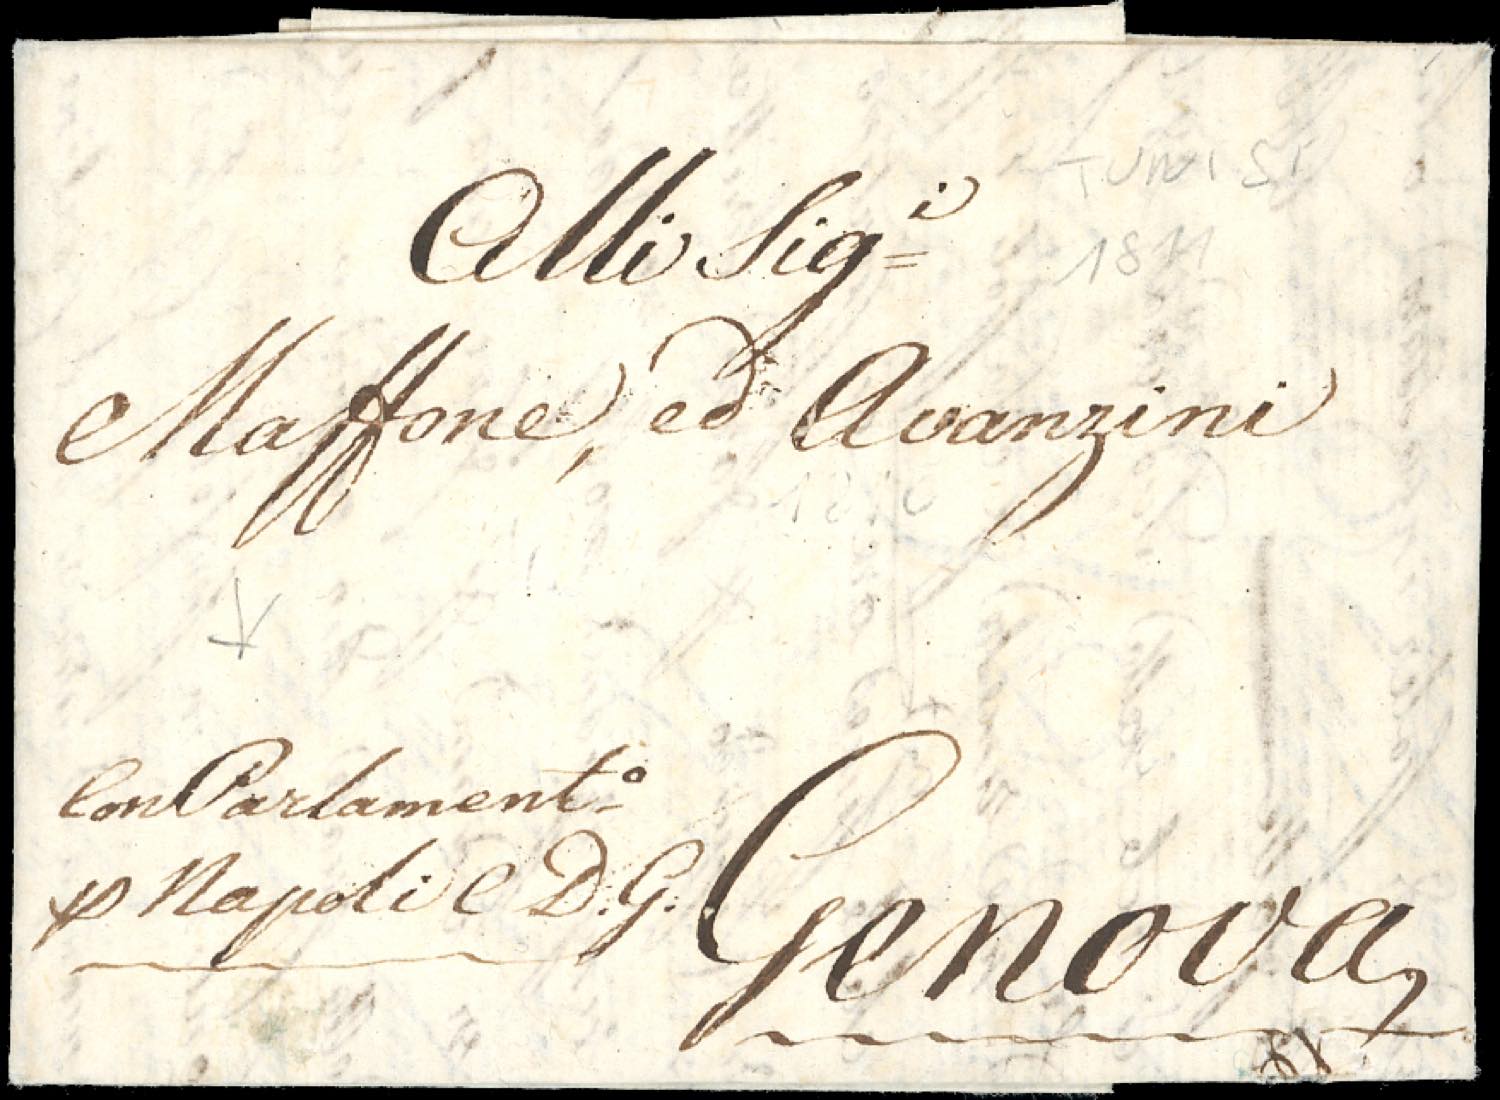 Alli Sig.i
TUNISI
1811
Maffone, ed Avanzini
Con Parlament.o
p Napoli e D.G.
Genova,